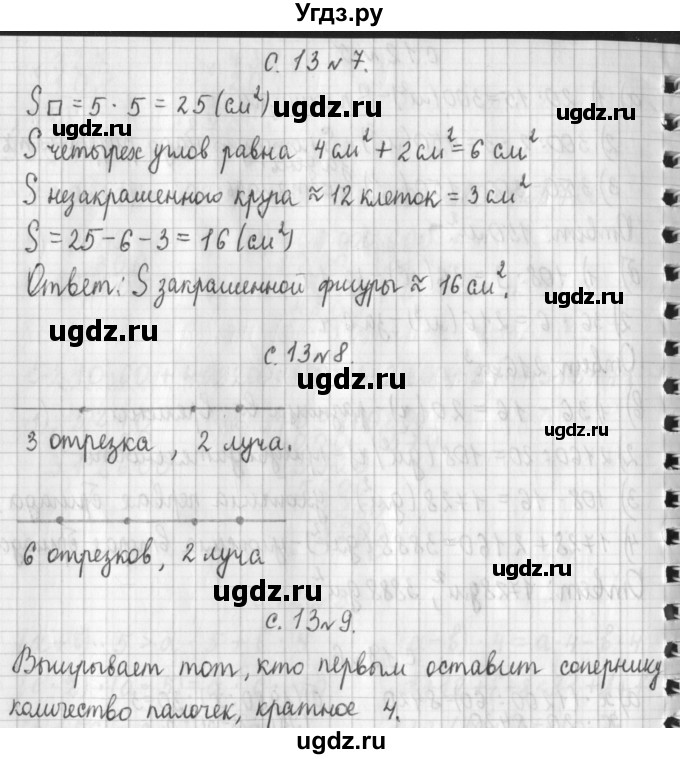 Угдз.ру
с. 13 № 7.
S □ = 5 · 5 = 25 (см²)
ugdz.ru
ugdz.ru
S четырех углов равна 4 см² + 2 см² = 6 см²
S незакрашенного круга ≈ 12 клеток = 3 см²
S = 25 - 6 - 3 = 16 (см²)
ugdz.ru
ugdz.ru
Ответ: S закрашенной фигуры ≈ 16 см².
ugdz.ru
ugdz.ru
с. 13 № 8.
ugdz.ru
3 отрезка, 2 луча.
ugdz.ru
ugdz.ru
6 отрезков, 2 луча
ugdz.ru
ugdz.ru
с. 13 № 9.
Выигрывает тот, кто первым оставит сопернику
количество палочек, кратное 4.
ugdz.ru
ugdz.ru